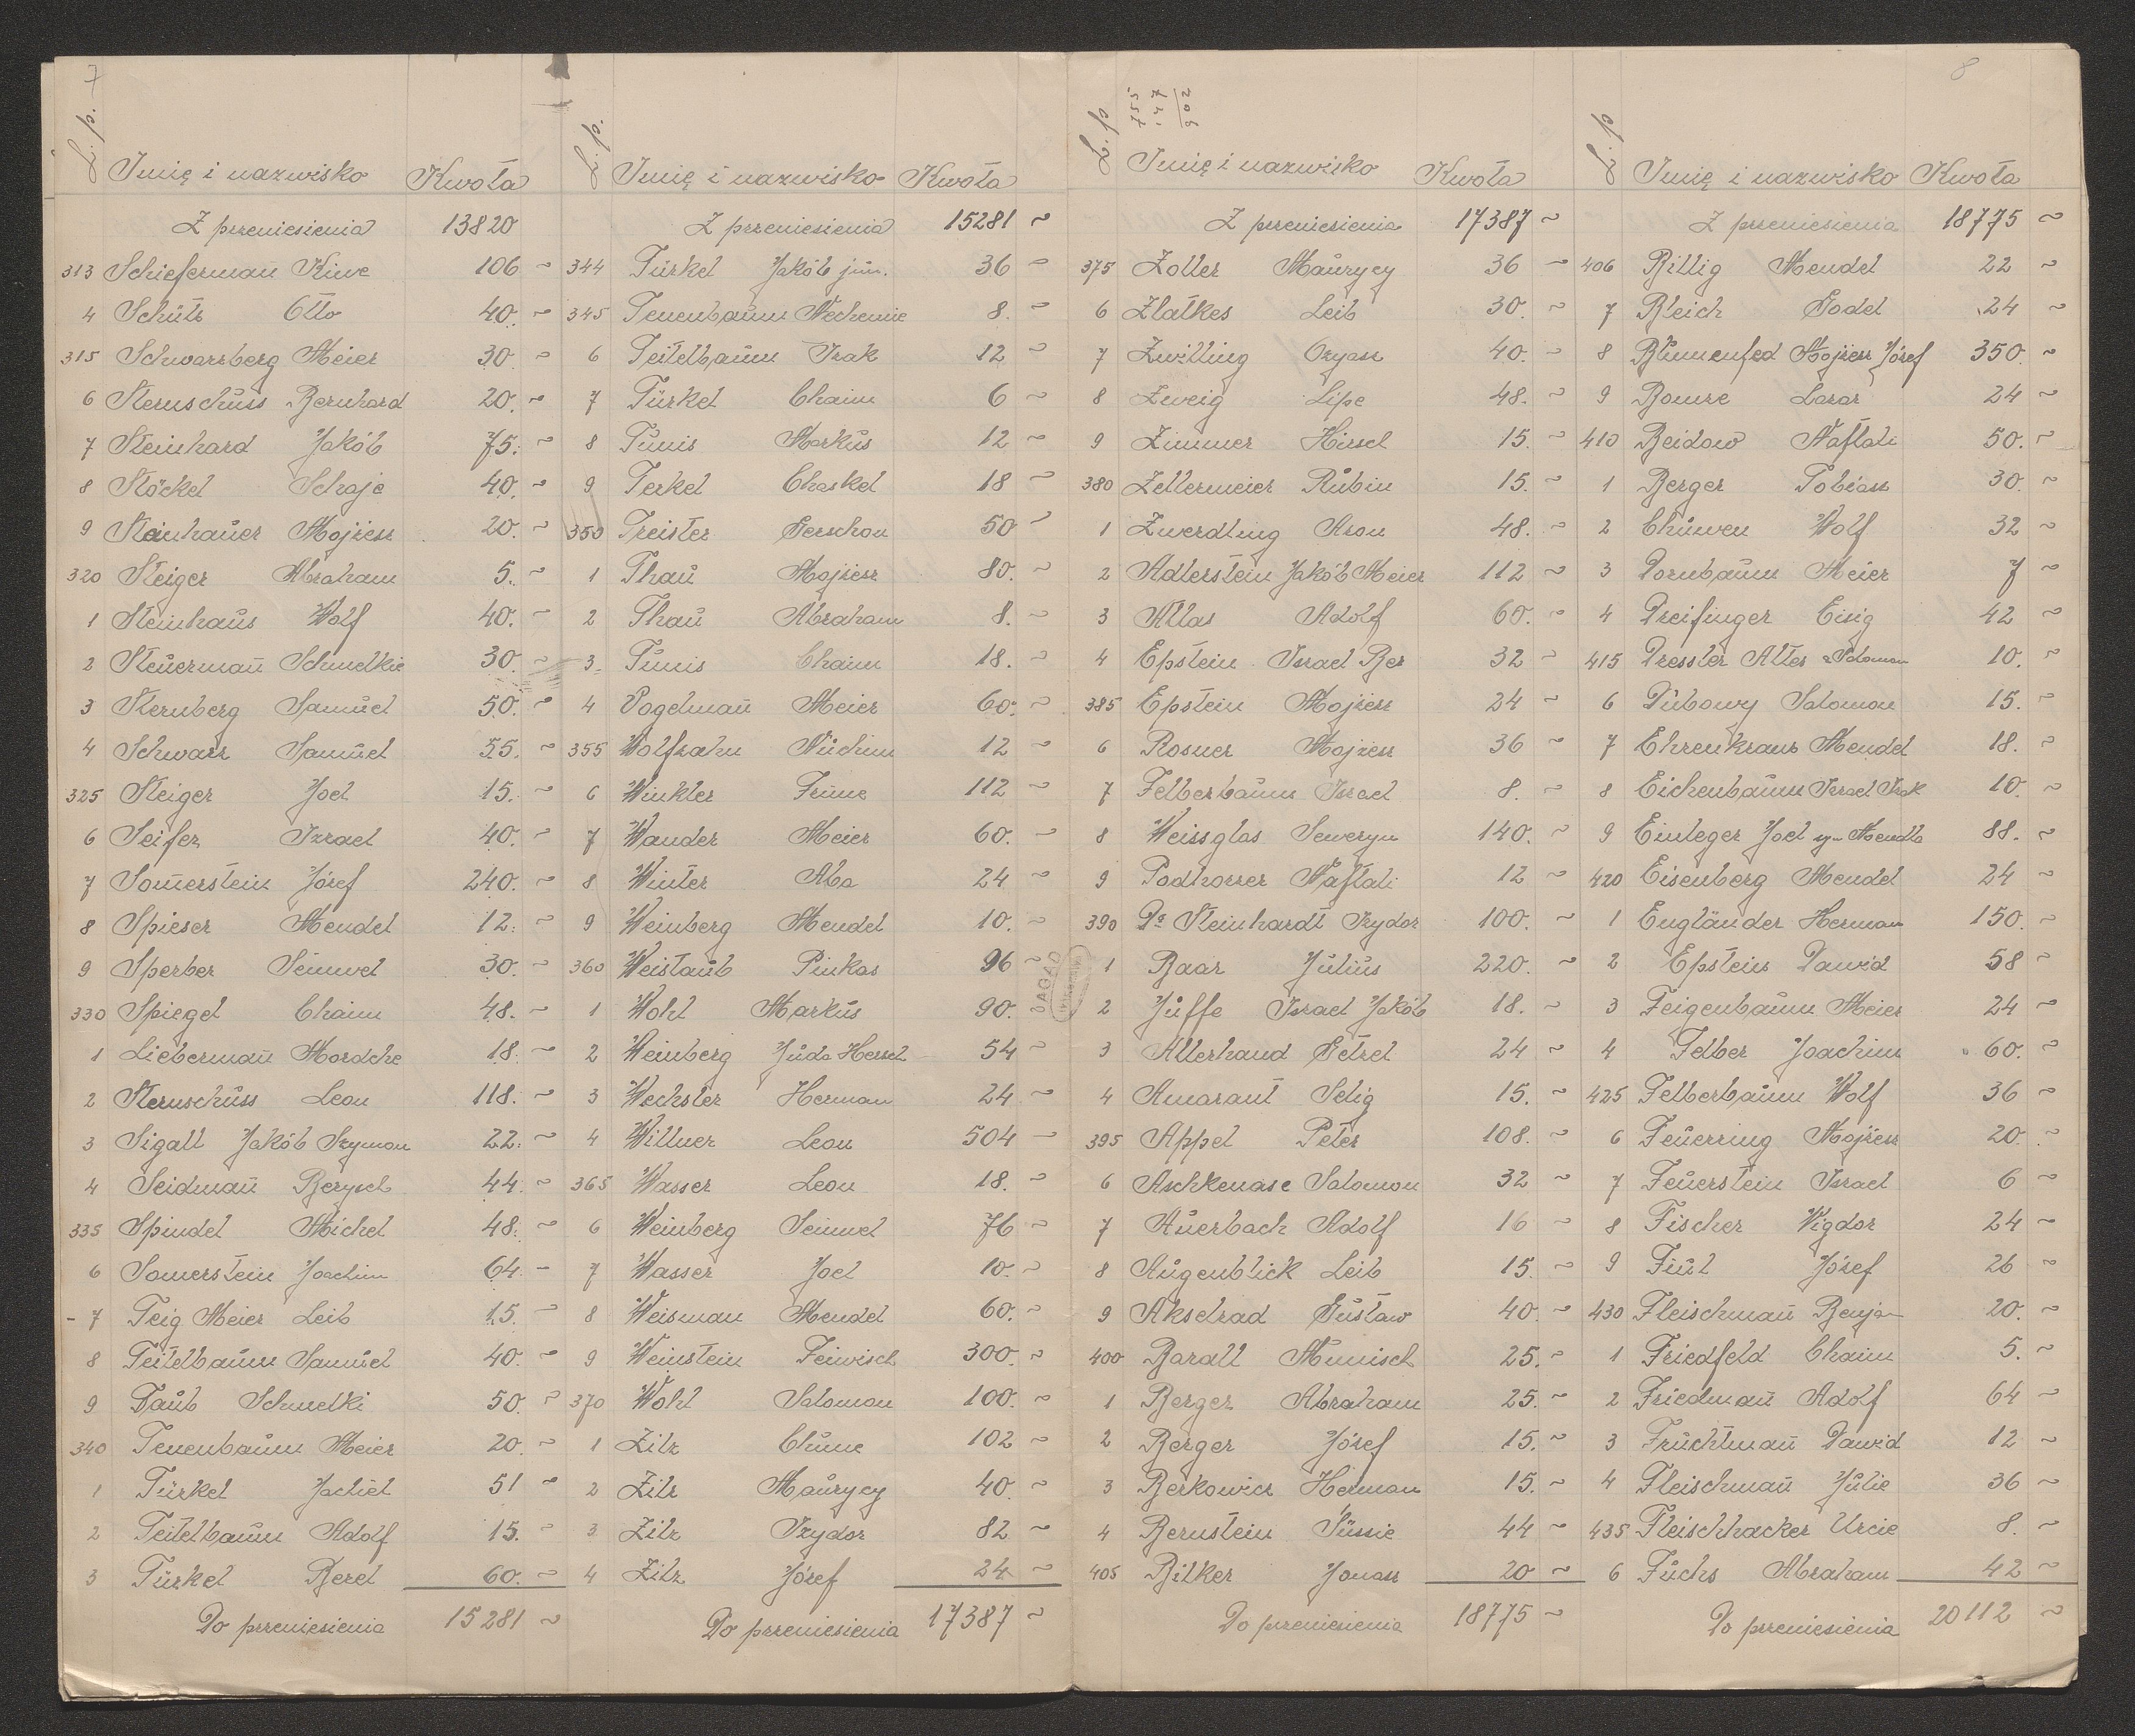 7
L. p. Imię i nazwisko Kwota
Z przeniesienia 13820
313 Schiefermañ Kiwe 106 ~
4 Schütz Otto 40. ~
315 Schwarzberg Meier 30. ~
6 Sternschüss Bernhard 20. ~
7 Steinhard Jakób 75. ~
8 Stöckel Schaje 40. ~
9 Steinhaŭer Mojżesz 20. ~
320 Steiger Abraham 5. ~
1 Steinhaŭs Wolf 40. ~
2 Steŭermañ Schmelkie 30. ~
3 Sternberg Samŭel 50. ~
4 Schwarz Samŭel 55. ~
325 Steiger Joel 15. ~
6 Seifer Izrael 40. ~
7 Somerstein Józef 240. ~
8 Spieser Mendel 12. ~
9 Sperber Seinwel 30. ~
330 Spiegel Chaim 48. ~
1 Liebermañ Mordche 18. ~
2 Sternschŭss Leon 118. ~
3 Sigall Jakób Szymon 22. ~
4 Seidmañ Berysch 44. ~
335 Spindel Michel 48. ~
6 Somerstein Joachim 64 ~
- 7 Teig Meier Leib 15. ~
8 Teitelbaŭm Samŭel 40. ~
9 Taŭb Schmelki 50. ~
340 Tenenbaŭm Meier 20. ~
1 Türkel Jachiel 51 ~
2 Teitelbaŭm Adolf 15. ~
3 Türkel Berel 60. ~
Do przeniesienia 15281 ~
L. p. Imię i nazwisko Kwota
Z przeniesienia 15281 ~
344 Türkel Jakób jun. 36 ~
345 Tenenbaŭm Nechemie 8. ~
6 Teitelbaŭm Izak 12 ~
7 Türkel Chaim 6 ~
8 Tŭnis Markŭs 12 ~
9 Terkel Chaskel 18 ~
350 Treister Gerschon 50 ~
1 Thaŭ Mojżesz 80. ~
2 Thaŭ Abraham 8. ~
3 Tŭnis Chaim 18. ~
4 Vogelmañ Meier 60. ~
355 Wolfzahn Nŭchim 12 ~
6 Winkler Frime 112 ~
7 Wander Meier 60. ~
8 Winter Aba 24 ~
9 Weinberg Mendel 10. ~
360 Weistaŭb Pinkas 96 ~
1 Wohl Markŭs 90. ~
2 Weinberg Jŭda Hersch 54 ~
3 Wechsler Herman 24 ~
4 Willner Leon 504 ~
365 Wasser Leon 18. ~
6 Weinberg Seinwel 76 ~
7 Wasser Joel 10. ~
8 Weisman Mendel 60. ~
9 Weinstein Feiwisch 300. ~
370 Wohl Salomon 100. ~
1 Zilz Chŭne 102 ~
2 Zilz Maŭrycy 40. ~
3 Zilz Izydor 82 ~
4 Zilz Józef 24 ~
Do przeniesienia 17387 ~
755
147
902
L. p Imię i nazwisko Kwota
Z przeniesienia 17387 ~
375 Zoller Maŭrycy 36 ~
6 Zlatkes Leib 30. ~
7 Zwilling Ozyasz 40. ~
8 Zweig Lipe 48. ~
9 Zimmer Hirsch 15. ~
380 Zellermeier Rŭbin 15. ~
1 Zwerdling Aron 48. ~
2 Adlerstein Jakób Meier 112 ~
3 Atlas Adolf 60. ~
4 Epstein Israel Ber 32 ~
385 Epstein Mojżesz 24 ~
6 Rosner Mojżesz 36 ~
7 Felberbaŭm Israel 8. ~
8 Weissglas Seweryn 140. ~
9 Podhorzer Naftali 12 ~
390 Dr Steinhardt Izydor 100. ~
1 Baar Jŭliŭs 220. ~
2 Jŭffe Israel Jakób 18. ~
3 Allerhand Getzel 24 ~
4 Amarant Selig 15. ~
395 Appel Peter 108. ~
6 Aschkenase Salomon 32 ~
7 Aŭerbach Adolf 16 ~
8 Aŭgenblick Leib 15. ~
9 Akselrad Gustaw 40. ~
400 Barall Mŭnisch 25. ~
1 Berger Abraham 25. ~
2 Berger Józef 15. ~
3 Berkowicz Herman 15. ~
4 Bernstein Süssie 44 ~
405 Bilker Jonasz 20 ~
Do przeniesienia 18775 ~
8
L. p Imię i nazwisko Kwota
Z przeniesienia 18775 ~
406 Billig Mendel 22 ~
7 Bleich Godel 24 ~
8 Blŭmenfed Mojżesz Józef 350. ~
9 Bomze Lazar 24 ~
410 Beidow Naftali 50. ~
1 Berger Tobiasz 30. ~
2 Chŭwen Wolf 32 ~
3 Dornbaŭm Meier 7 ~
4 Dreifinger Eisig 42 ~
415 Dressler Alter Salomon 10. ~
6 Dŭbowy Salomon 15. ~
7 Ehrenkranz Mendel 18. ~
8 Eichenbaŭm Israel Izak 10. ~
9 Einleger Joel syn Mendla 88. ~
420 Eisenberg Mendel 24 ~
1 Engländer Herman 150. ~
2 Epstein Dawid 58 ~
3 Feigenbaŭm Meier 24 ~
4 Felber Joachim 60. ~
425 Felberbaŭm Wolf 36 ~
6 Feŭerring Mojżesz 20. ~
7 Feŭerstein Israel 6 ~
8 Fischer Wigdor 24 ~
9 Fiŭl Józef 26 ~
430 Fleischmañ Benja 20. ~
1 Friedfeld Chaim 5. ~
2 Friedmañ Adolf 64 ~
3 Früchtmañ Dawid 12 ~
4 Fleischmañ Jŭlie 36 ~
435 Fleischhacker Urcie 8. ~
6 Fŭchs Abraham 42 ~
Do przeniesienia 20112 ~